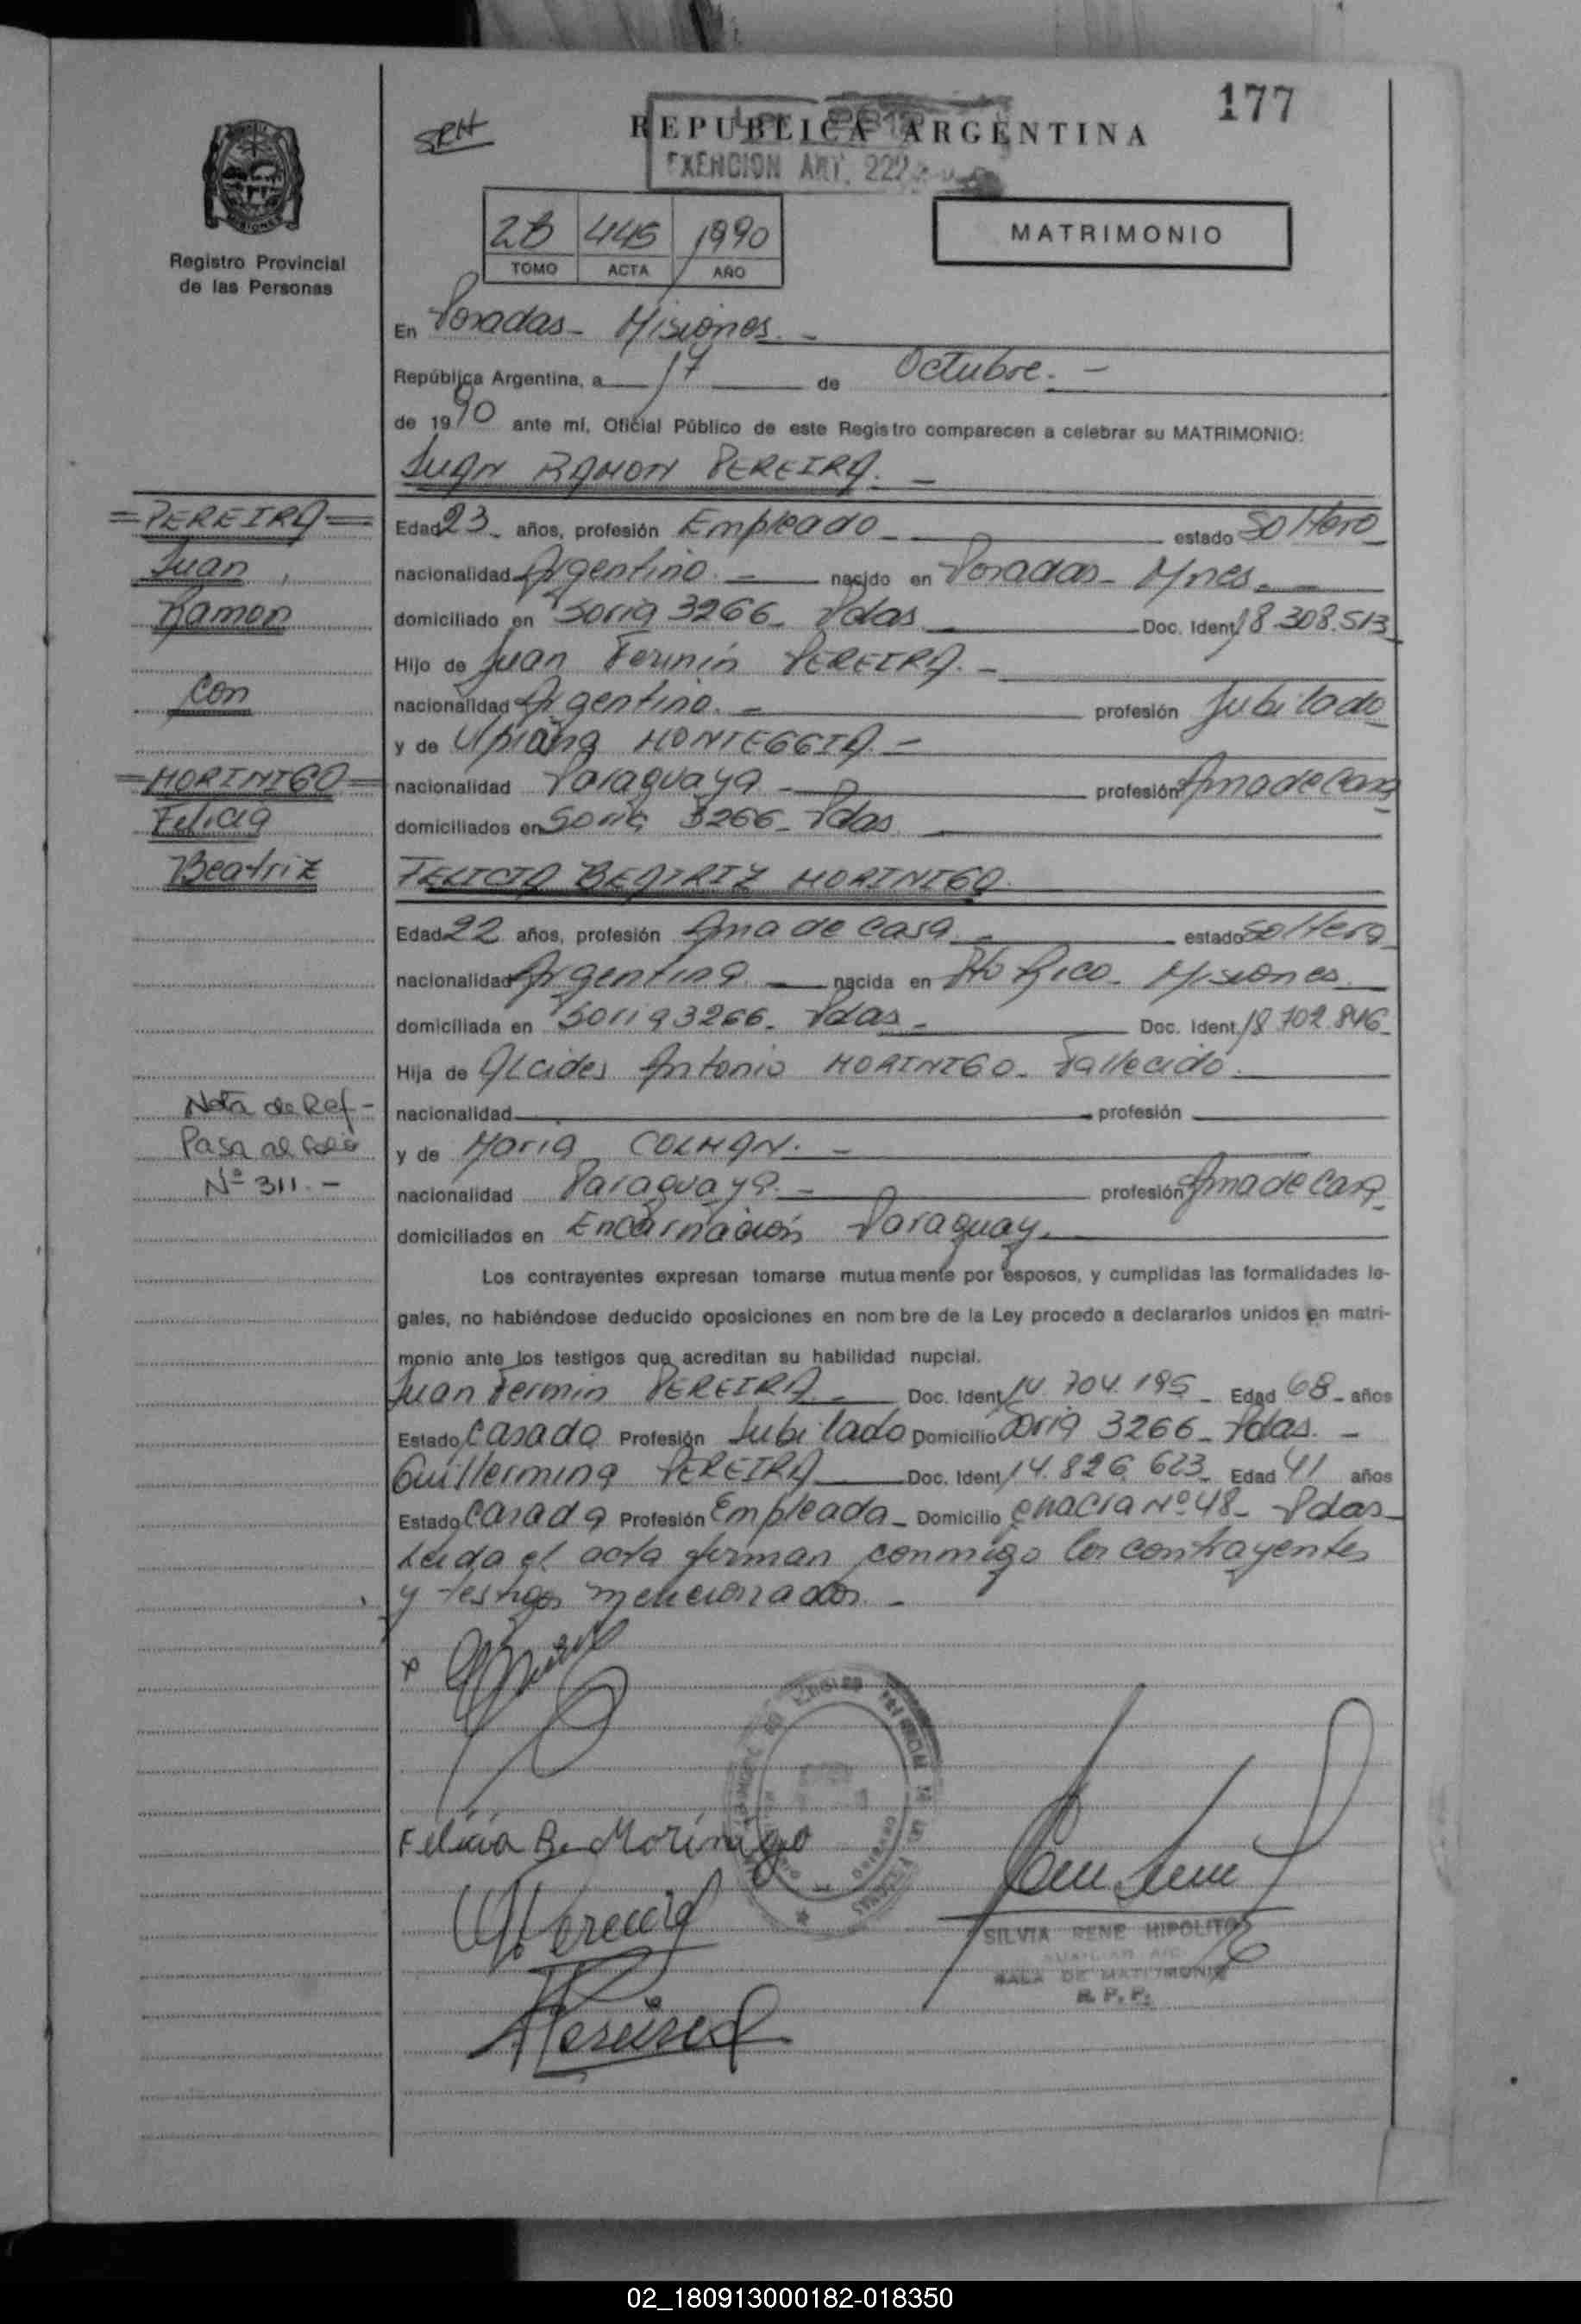 177
SRH
REPUBLICA ARGENTINA
EXENCION ART. 222
2B 445 1990
TOMO ACTA AÑO
MATRIMONIO
MISIONES
Registro Provincial
de las Personas
En Posadas - Misiones. -
República Argentina, a 17 de Octubre. -
de 1990 ante mí, Oficial Público de este Registro comparecen a celebrar su MATRIMONIO:
JUAN RAMON PEREIRA. -
= PEREIRA =
Juan
Ramon
con
= MORINIGO =
Felicia
Beatriz
Edad 23 - años, profesión Empleado - estado Soltero
nacionalidad Argentino. - nacido en Posadas - Mnes. -
domiciliado en Soria 3266 - Pdas Doc. Ident. 18.308.513
Hijo de Juan Fermín PEREIRA. -
nacionalidad Argentino. - profesión Jubilado
y de MONTEGGIA. -
nacionalidad Paraguaya - profesión Ama de Casa
domiciliados en Soria 3266 - Pdas
FELICIA BEATRIZ MORINIGO.
Edad 22 años, profesión Ama de Casa - estado Soltera
nacionalidad Argentina - nacida en Pto Rico - Misiones.
domiciliada en Soria 3266 - Pdas - Doc. Ident. 18.702.846
Hija de Alcides Antonio MORINIGO - Fallecido.
nacionalidad profesión
y de Maria COLMAN. -
nacionalidad Paraguaya. - profesión Ama de Casa
domiciliados en Encarnación Paraguay.
Nota de Ref -
Pasa al Folio
Nº 311. -
Los contrayentes expresan tomarse mutuamente por esposos, y cumplidas las formalidades le-
gales, no habiéndose deducido oposiciones en nombre de la Ley procedo a declararlos unidos en matri-
monio ante los testigos que acreditan su habilidad nupcial.
Juan Fermin PEREIRA - Doc. Ident. 14.704.195 - Edad 68 - años
Estado Casado Profesión Jubilado Domicilio Soria 3266 - Pdas. -
Guillermina PEREIRA Doc. Ident. 14.826.623 - Edad 41 años
Estado Casada Profesión Empleada - Domicilio Chacra Nº 48 - Pdas -
Leida el acta firman conmigo los contrayentes
y testigos mencionados. -
Felicia B. Morinigo
SILVIA RENE HIPOLITO
AUXILIAR A/C
SALA DE MATRIMONIO
R. P. P.
02_180913000182-018350